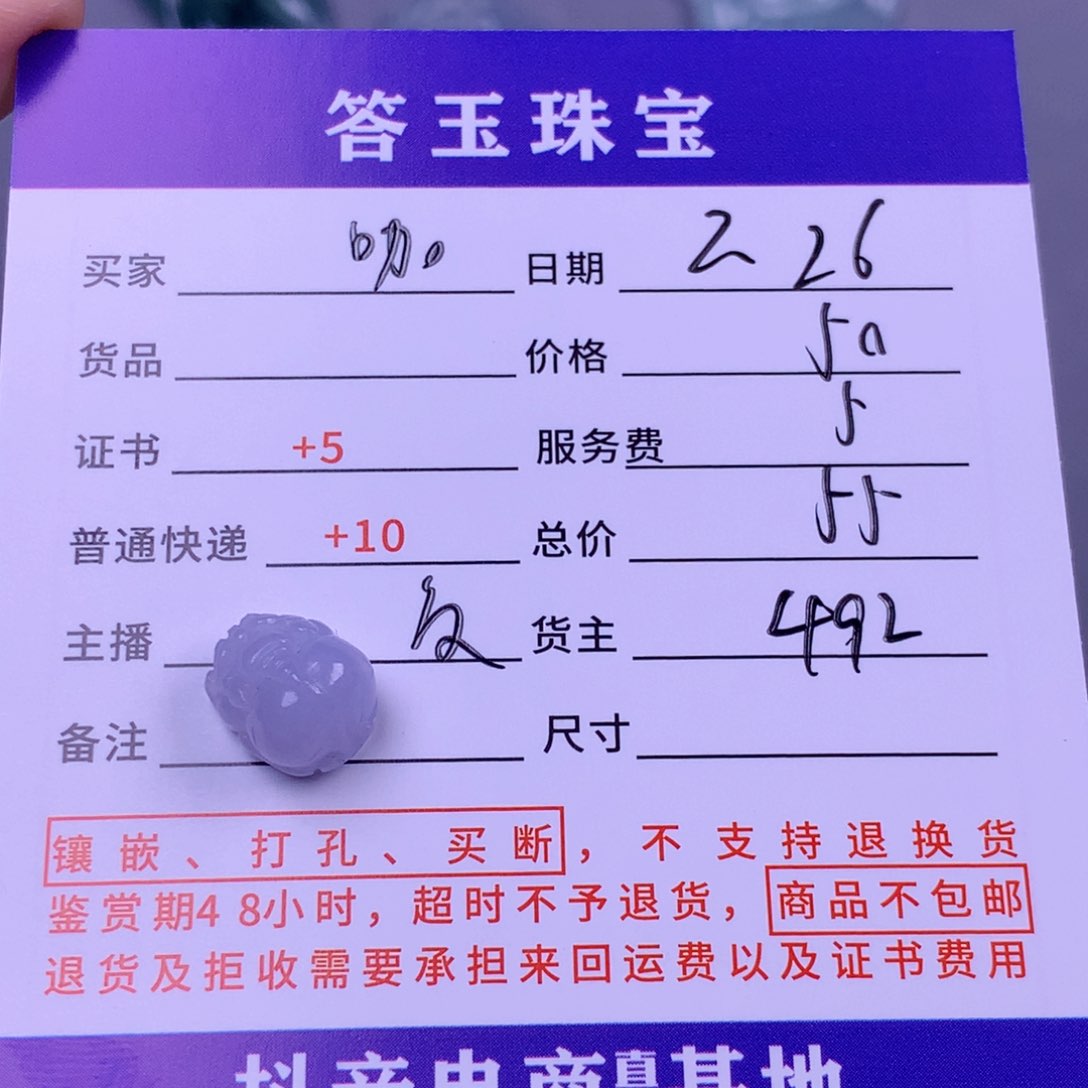 答玉珠宝
买家 咖。 日期 2 26
货品 价格 50
证书 +5 服务费 5
普通快递 +10 总价 55
主播 货主 492
备注 尺寸
镶嵌、打孔、买断，不支持退换货
鉴赏期48小时，超时不予退货，商品不包邮
退货及拒收需要承担来回运费以及证书费用
抖音电商直播基地